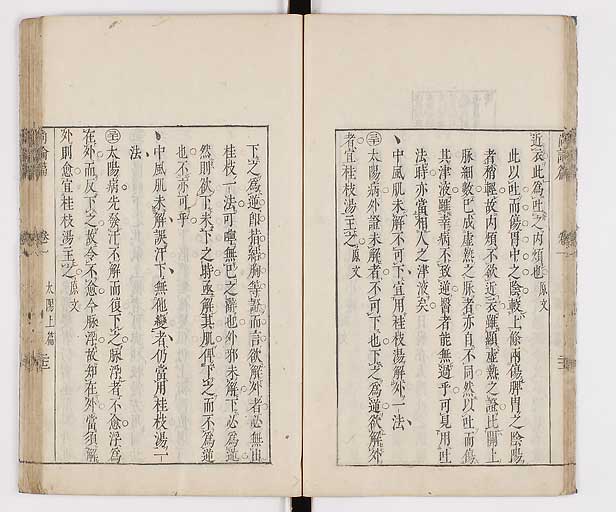 近衣此爲吐之内煩也原文
此以吐而傷胃中之陰較上條兩傷脾胃之陰陽
者稍輕故内煩不欲近衣雖顯虛熱之證比關上
脉細數已成虛熱之脉者亦自不同然以吐而傷
其津液雖幸病不致逆醫者能無過乎可見用吐
法時亦當相人之津液矣
中風肌未解不可下宜用桂枝湯解外一法
太陽病外證未解者不可下也下之爲逆欲解外
者宜桂枝湯主之原文
下之爲逆即指結胸等證而言欲解外者必無出
桂枝一法可嚀無已之辭也外邪未解下必爲逆
然則欲下未下之時亟解其肌俾下之而不爲逆
也不亦可乎
中風肌未解誤汗下無他變者仍當用桂枝湯一
法
太陽病先發汗不解而復下之脉浮者不愈浮爲
在外而反下之故令不愈今脉浮故知在外當須解
外則愈宜桂枝湯主之原文
尚論篇
卷一
太陽上篇